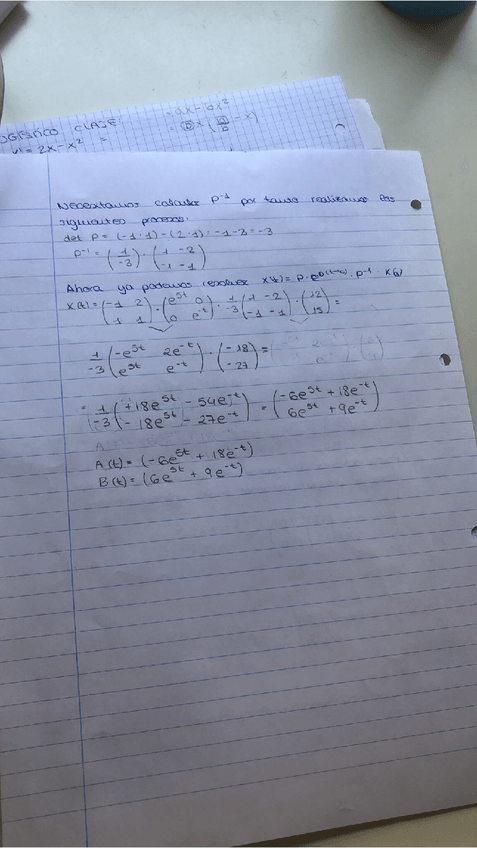 OGRÁFICO CLASE
= ax - bx²
y' = 2x - x² =
= x( - x)
Necesitamos calcular P⁻¹ por tanto realizamos los
siguientes procesos:
det P = (-1·1) - (2·1) = -1-2 = -3
P⁻¹ = (1/-3) · (1 -2 / -1 -1)
Ahora ya podemos resolver X(t) = P · e^D(t-t₀) · P⁻¹ · X(t₀)
X(t) = (-1 2 / 1 1) · (e^5t 0 / 0 e^-t) · 1/-3 (1 -2 / -1 -1) · (12 / 15) =
1/-3 (-e^5t 2e^-t / e^5t e^-t) · (-18 / -27) =
= 1/-3 (+18e^5t - 54e^-t / -18e^5t - 27e^-t) = (-6e^5t + 18e^-t / 6e^5t + 9e^-t)
A(t) = (-6e^5t + 18e^-t)
B(t) = (6e^5t + 9e^-t)